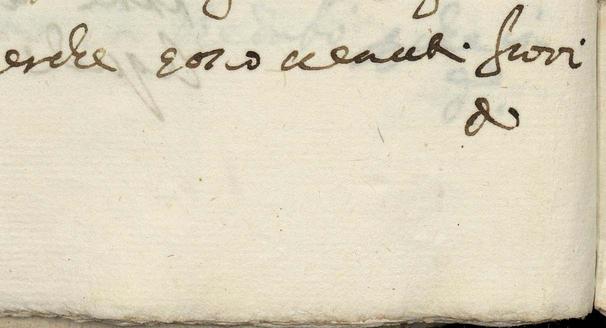 erche sono uenuti fuori
d